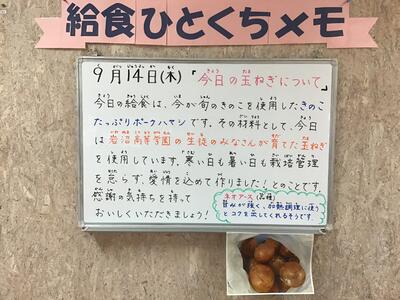 給食ひとくちメモ
9月14日(木)「今日の玉ねぎについて」
今日の給食は、今が旬のきのこを使用したきのこ
たっぷりポークハヤシです。その材料として、今日
は岩沼高等学園の生徒のみなさんが育てた玉ねぎ
を使用しています。寒い日も暑い日も栽培管理
を怠らず、愛情を込めて作りました!とのことです。
感謝の気持ちを持って
おいしくいただきましょう!
ネオアース(品種)
甘みが強く、加熱調理に使う
とコクを出してくれるそうです。